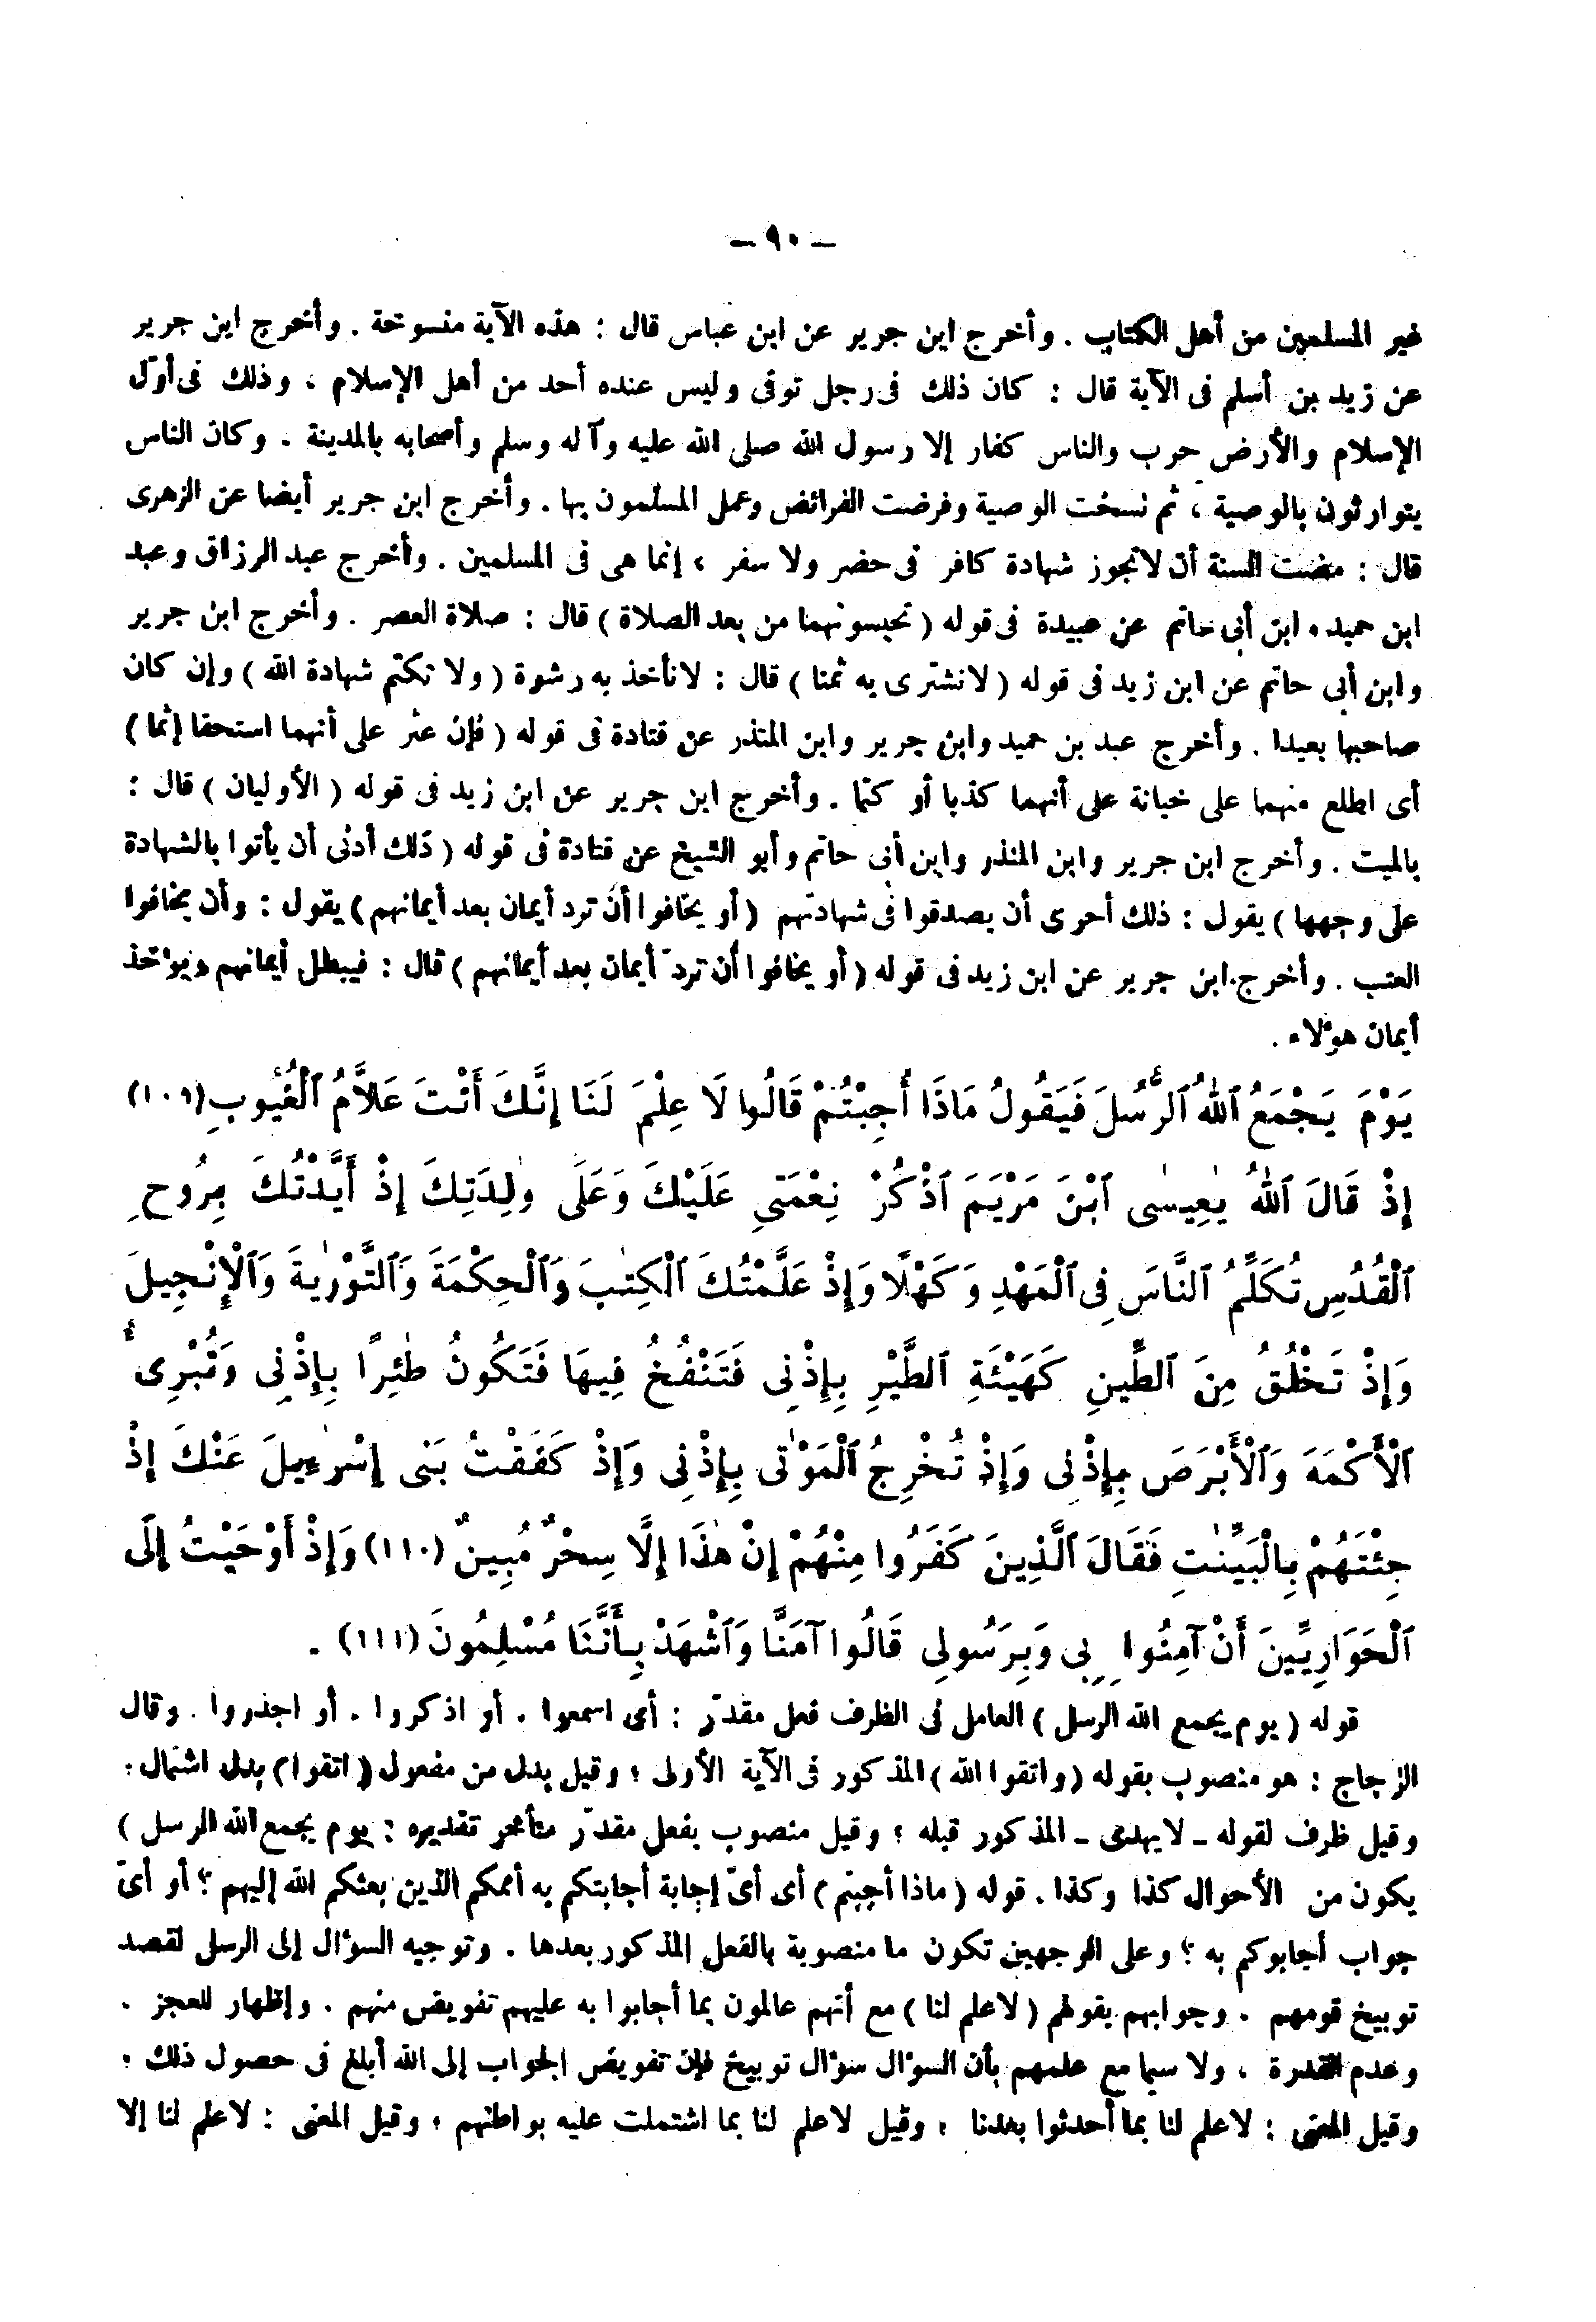 — ٩٠ —
غير المسلمين من أهل الكتاب . وأخرج ابن جرير عن ابن عباس قال : هذه الآية منسوخة . وأخرج ابن جرير
عن زيد بن أسلم فى الآية قال : كان ذلك فى رجل توفى وليس عنده أحد من أهل الإسلام ، وذلك فى أوّل
الإسلام والأرض حرب والناس كفار إلا رسول الله صلى الله عليه وآله وسلم وأصحابه بالمدينة . وكان الناس
يتوارثون بالوصية ، ثم نسخت الوصية وفرضت الفرائض وعمل المسلمون بها . وأخرج ابن جرير أيضا عن الزهرى
قال : مضت السنة أن لاتجوز شهادة كافر فى حضر ولا سفر ، إنما هى فى المسلمين . وأخرج عبد الرزاق وعبد
ابن حميد وابن أبى حاتم عن عبيدة فى قوله ( تحبسونهما من بعد الصلاة ) قال : صلاة العصر . وأخرج ابن جرير
وابن أبى حاتم عن ابن زيد فى قوله ( لانشترى به ثمنا ) قال : لانأخذ به رشوة ( ولا نكتم شهادة الله ) وإن كان
صاحبها بعيدا . وأخرج عبد بن حميد وابن جرير وابن المنذر عن قتادة فى قوله ( فإن عثر على أنهما استحقا إثما )
أى اطلع منهما على خيانة على أنهما كذبا أو كتما . وأخرج ابن جرير عن ابن زيد فى قوله ( الأوليان ) قال :
بالميت . وأخرج ابن جرير وابن المنذر وابن أبى حاتم وأبو الشيخ عن قتادة فى قوله ( ذلك أدنى أن يأتوا بالشهادة
على وجهها ) يقول : ذلك أحرى أن يصدقوا فى شهادتهم ( أو يخافوا أن ترد أيمان بعد أيمانهم ) يقول : وأن يخافوا
العتب . وأخرج ابن جرير عن ابن زيد فى قوله ( أو يخافوا أن تردّ أيمان بعد أيمانهم ) قال : فيبطل أيمانهم ويؤخذ
أيمان هؤلاء .
يَوْمَ يَجْمَعُ ٱللهُ ٱلرُّسُلَ فَيَقُولُ مَاذَا أُجِبْتُمْ قَالُوا لَا عِلْمَ لَنَا إِنَّكَ أَنْتَ عَلَّامُ ٱلْغُيُوبِ (١٠٩)
إِذْ قَالَ ٱللهُ يٰعِيسٰى ٱبْنَ مَرْيَمَ ٱذْكُرْ نِعْمَتِي عَلَيْكَ وَعَلَى وٰلِدَتِكَ إِذْ أَيَّدْتُكَ بِرُوحِ
ٱلْقُدُسِ تُكَلِّمُ ٱلنَّاسَ فِى ٱلْمَهْدِ وَكَهْلًا وَإِذْ عَلَّمْتُكَ ٱلْكِتٰبَ وَٱلْحِكْمَةَ وَٱلتَّوْرٰيةَ وَٱلْإِنْجِيلَ
وَإِذْ تَخْلُقُ مِنَ ٱلطِّينِ كَهَيْئَةِ ٱلطَّيْرِ بِإِذْنِى فَتَنْفُخُ فِيهَا فَتَكُونُ طٰئِرًا بِإِذْنِى وَتُبْرِئُ
ٱلْأَكْمَهَ وَٱلْأَبْرَصَ بِإِذْنِى وَإِذْ تُخْرِجُ ٱلْمَوْتٰى بِإِذْنِى وَإِذْ كَفَفْتُ بَنِى إِسْرٰءِيلَ عَنْكَ إِذْ
جِئْتَهُمْ بِالْبَيِّنٰتِ فَقَالَ ٱلَّذِينَ كَفَرُوا مِنْهُمْ إِنْ هٰذَا إِلَّا سِحْرٌ مُبِينٌ (١١٠) وَإِذْ أَوْحَيْتُ إِلَى
ٱلْحَوَارِيِّينَ أَنْ آمِنُوا بِى وَبِرَسُولِى قَالُوا آمَنَّا وَٱشْهَدْ بِأَنَّنَا مُسْلِمُونَ (١١١) .
قوله ( يوم يجمع الله الرسل ) العامل فى الظرف فعل مقدّر : أى اسمعوا ، أو اذكروا ، أو احذروا . وقال
الزجاج : هو منصوب بقوله ( واتقوا الله ) المذكور فى الآية الأولى ؛ وقيل بدل من مفعول ( اتقوا ) بدل اشتمال ؛
وقيل ظرف لقوله ـ لايهدى ـ المذكور قبله ؛ وقيل منصوب بفعل مقدّر متأخر تقديره : يوم يجمع الله الرسل )
يكون من الأحوال كذا وكذا . قوله ( ماذا أجبتم ) أى أىّ إجابة أجابتكم به أممكم الذين بعثكم الله إليهم ؟ أو أىّ
جواب أجابوكم به ؟ وعلى الوجهين تكون ما منصوبة بالفعل المذكور بعدها . وتوجيه السؤال إلى الرسل لقصد
توبيخ قومهم . وجوابهم بقولهم ( لاعلم لنا ) مع أنهم عالمون بما أجابوا به عليهم تفويض منهم ، وإظهار للعجز .
وعدم القدرة ، ولا سيما مع علمهم بأن السؤال سؤال توبيخ فإن تفويض الجواب إلى الله أبلغ فى حصول ذلك ،
وقيل المعنى : لاعلم لنا بما أحدثوا بعدنا ؛ وقيل لاعلم لنا بما اشتملت عليه بواطنهم ؛ وقيل المعنى : لاعلم لنا إلا